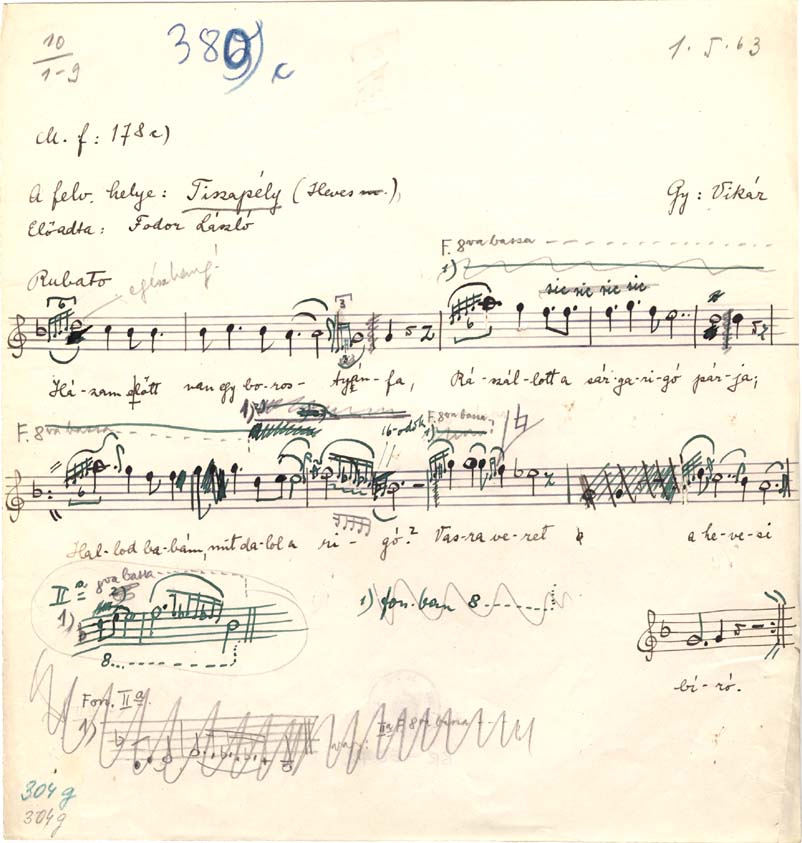 10
1-9
380) c
1.5.63
M. f: 178c)
A felv. helye: Tiszapély (Heves m.)
Gy: Vikár
Előadta: Fodor László
F. 8va bassa
1)
Rubato
egészhang!
6
3
6
sic sic sic sic
Há-zam előtt van egy bo-ros-tyán-fa, Rá-szál-lott a sár-ga ri-gó pár-ja;
F. 8va bassa
1)
16-odok
F. 8va bassa
1)
6
Hal-lod ba-bám, mit da-lol a ri-gó? Vas-ra ve-ret a he-ve-si
II a
8va bassa
1)
8
1) fon.-ban 8
bí-ró.
Fon. II a
1)
IIa F. 8va bassa
304g
304g